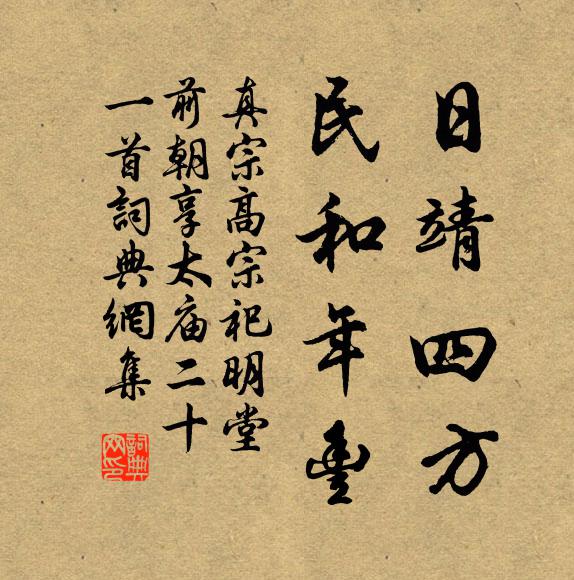 日靖四方
民和年豐
真宗高宗祀明堂
前朝享太庙二十
一首詞典網集
詞典
网印